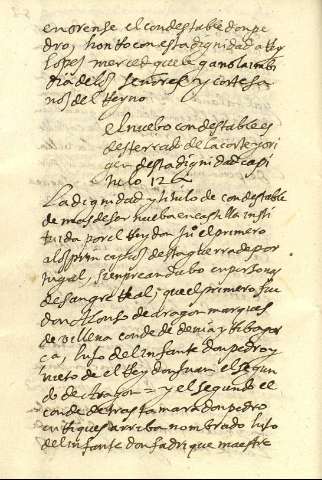 en orense el condestable don pe
dro, honrro con esta dignidad a Ruy
lopes merced que le gano la imbi
dia de los señores y cortesa
nos del Reyno
el nuebo condestable es
desterrado de la corte y ori
gen desta dignidad capi
tulo 126
La dignidad y titulo de condestable
demas de ser nueba en castilla insti
tuida por el Rey don Ju.º el primero
a los prinçipios de la guerra de por
tugal, siempre andubo en personas
de sangre Real; que el primero fue
don Alonso de aragon marques
de villena conde de denia y Ribagor
ça, hijo del infante don pedro y
nieto de el Rey don Juan el segun
do de Aragon = y el segundo el
conde de trastamara don pedro
enrriques arriba nombrado hijo
del infante don fadrique maestre